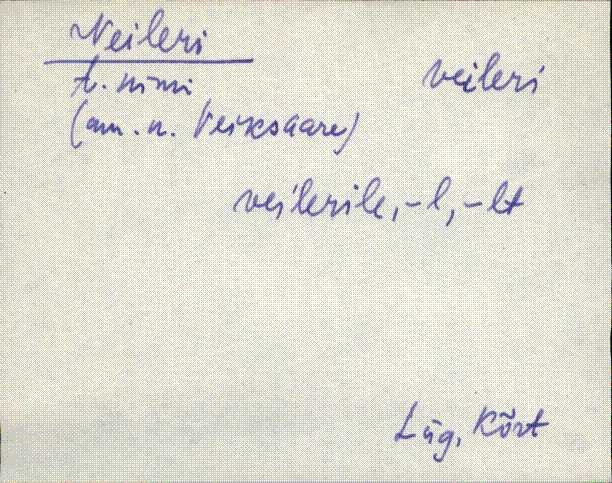 Veileri
t. nimi
veileri
(am. n. Veiksaare)
veilerile, -l, -lt
Lüg, Kõrt